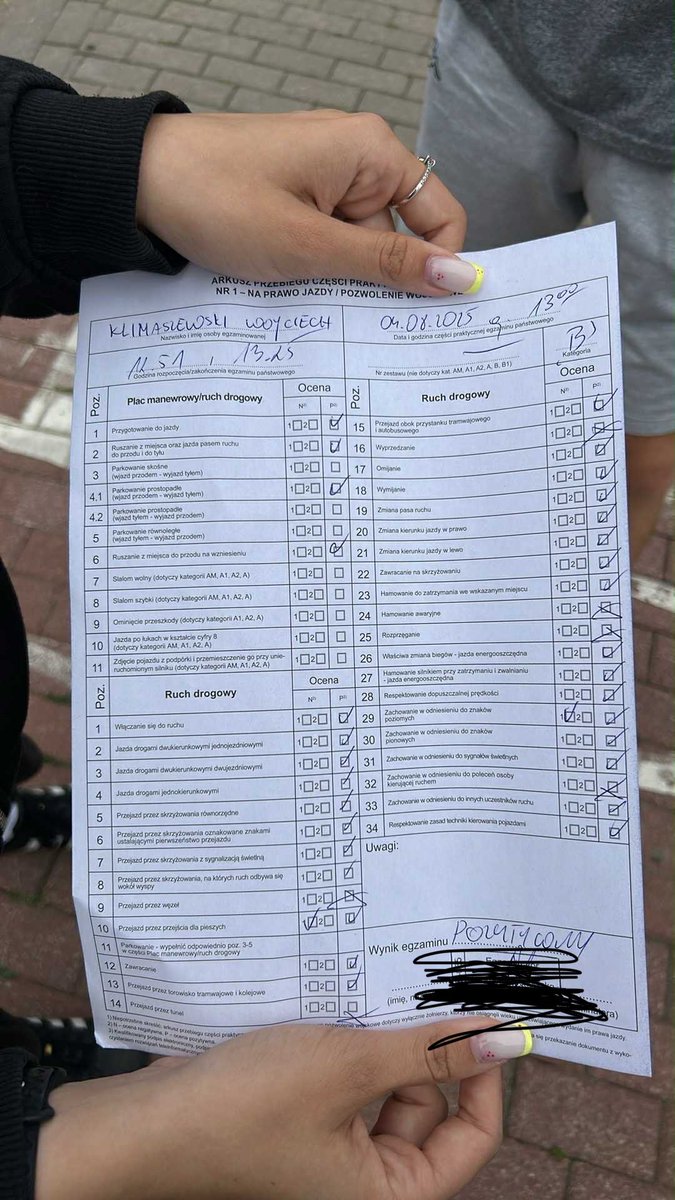 ARKUSZ PRZEBIEGU CZĘŚCI PRAKT
NR 1 – NA PRAWO JAZDY / POZWOLENIE WO
KLIMASZEWSKI WOJCIECH
Nazwisko i imię osoby egzaminowanej
04.08.2025 g. 13:00
Data i godzina części praktycznej egzaminu państwowego
12.51, 13.25
Godzina rozpoczęcia/zakończenia egzaminu państwowego
Nr zestawu (nie dotyczy kat. AM, A1, A2, A, B, B1)
B
Kategoria
Poz. Plac manewrowy/ruch drogowy Ocena
N²⁾ P²⁾
1 Przygotowanie do jazdy 1 2
2 Ruszanie z miejsca oraz jazda pasem ruchu do przodu i do tyłu 1 2
3 Parkowanie skośne (wjazd przodem - wyjazd tyłem) 1 2
4.1 Parkowanie prostopadłe (wjazd przodem - wyjazd tyłem) 1 2
4.2 Parkowanie prostopadłe (wjazd tyłem - wyjazd przodem) 1 2
5 Parkowanie równoległe (wjazd tyłem - wyjazd przodem) 1 2
6 Ruszanie z miejsca do przodu na wzniesieniu 1 2
7 Slalom wolny (dotyczy kategorii AM, A1, A2, A) 1 2
8 Slalom szybki (dotyczy kategorii AM, A1, A2, A) 1 2
9 Ominięcie przeszkody (dotyczy kategorii A1, A2, A) 1 2
10 Jazda po łukach w kształcie cyfry 8 (dotyczy kategorii AM, A1, A2, A) 1 2
11 Zdjęcie pojazdu z podpórki i przemieszczenie go przy unieruchomionym silniku (dotyczy kategorii AM, A1, A2, A) 1 2
Poz. Ruch drogowy Ocena
N²⁾ P²⁾
1 Włączanie się do ruchu 1 2
2 Jazda drogami dwukierunkowymi jednojezdniowymi 1 2
3 Jazda drogami dwukierunkowymi dwujezdniowymi 1 2
4 Jazda drogami jednokierunkowymi 1 2
5 Przejazd przez skrzyżowania równorzędne 1 2
6 Przejazd przez skrzyżowania oznakowane znakami ustalającymi pierwszeństwo przejazdu 1 2
7 Przejazd przez skrzyżowania z sygnalizacją świetlną 1 2
8 Przejazd przez skrzyżowania, na których ruch odbywa się wokół wyspy 1 2
9 Przejazd przez węzeł 1 2
10 Przejazd przez przejścia dla pieszych 2
11 Parkowanie - wypełnić odpowiednio poz. 3-5 w części Plac manewrowy/ruch drogowy
12 Zawracanie 1 2
13 Przejazd przez torowisko tramwajowe i kolejowe 1 2
14 Przejazd przez tunel 1 2
Poz. Ruch drogowy Ocena
N²⁾ P²⁾
15 Przejazd obok przystanku tramwajowego i autobusowego 1 2
16 Wyprzedzanie 1 2
17 Omijanie 1 2
18 Wymijanie 1 2
19 Zmiana pasa ruchu 1 2
20 Zmiana kierunku jazdy w prawo 1 2
21 Zmiana kierunku jazdy w lewo 1 2
22 Zawracanie na skrzyżowaniu 1 2
23 Hamowanie do zatrzymania we wskazanym miejscu 1 2
24 Hamowanie awaryjne 1 2
25 Rozprzęganie 1 2
26 Właściwa zmiana biegów - jazda energooszczędna 1 2
27 Hamowanie silnikiem przy zatrzymaniu i zwalnianiu - jazda energooszczędna 1 2
28 Respektowanie dopuszczalnej prędkości 1 2
29 Zachowanie w odniesieniu do znaków poziomych 1 2
30 Zachowanie w odniesieniu do znaków pionowych 1 2
31 Zachowanie w odniesieniu do sygnałów świetlnych 1 2
32 Zachowanie w odniesieniu do poleceń osoby kierującej ruchem 1 2
33 Zachowanie w odniesieniu do innych uczestników ruchu 1 2
34 Respektowanie zasad techniki kierowania pojazdami 1 2
Uwagi:
Wynik egzaminu POZYTYWNY
(imię, n
1) Niepotrzebne skreślić; arkusz przebiegu części prakty
2) N – ocena negatywna, P – ocena pozytywna.
3) Kwalifikowany podpis elektroniczny, podp